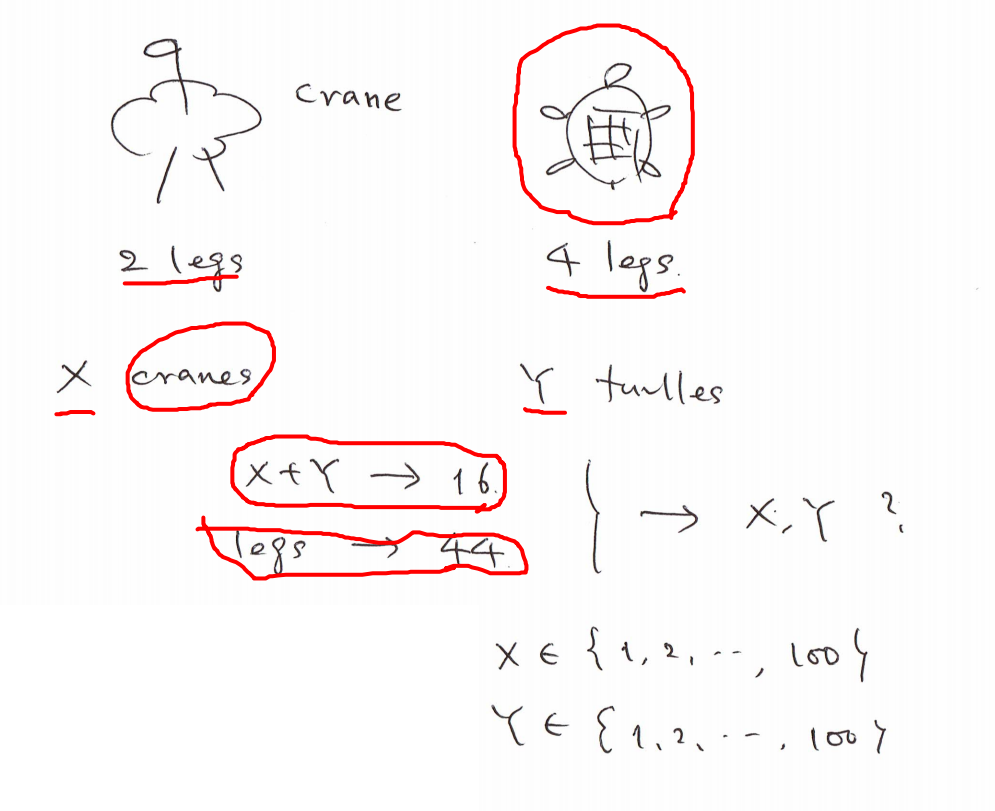 crane
2 legs
4 legs.
X cranes
Y turtles
X+Y → 16.
legs → 44.
} → X, Y ?
X ∈ {1, 2, ..., 100}
Y ∈ {1, 2, ..., 100}